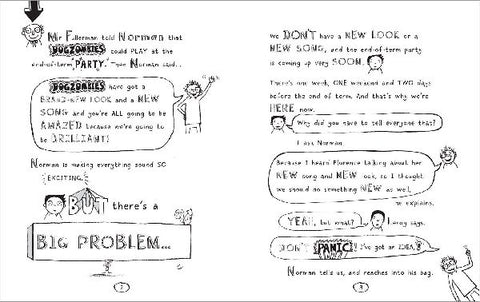 Mr Fullerman told Norman that
DOGZOMBIES could PLAY at the
end-of-term PARTY. Then Norman said...
DOGZOMBIES have got a
BRAND-NEW LOOK and a NEW
SONG and you're ALL going to be
AMAZED because we're going to
be BRILLIANT!
Norman is making everything sound SO
EXCITING.
BUT there's a
BIG PROBLEM...
2
We DON'T have a NEW LOOK or a
NEW SONG, and the end-of-term party
is coming up very SOON.
There's one week, ONE weekend and TWO days
before the end of term. And that's why we're
HERE now.
Why did you have to tell everyone that?
I ask Norman.
Because I heard Florence talking about her
NEW song and NEW look, so I thought
we should do something NEW as well,
he explains.
YEAH, but what?
says.
DON'T PANIC! I've got an IDEA!
Norman tells us, and reaches into his bag.
3